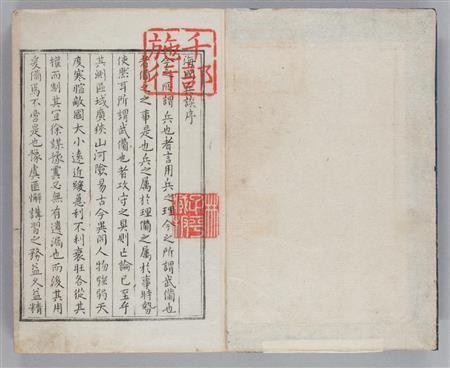 千部
施行
海國兵談序
今之所謂兵也者言用兵之理今之所謂武備也
者備之之事是也兵之属於理備之属於事時勢
使然耳所謂武備也者攻守之具則亡論已至乎
其測區域廣狹山河險易古今異同人物強弱天
度寒暄敵國大小遠近緩急利不利衰壮各從其
權而制其宜徐謀豫冀必無有遺漏也而後其用
爰備焉不啻是也豫虞匪懈講習之務益久益精